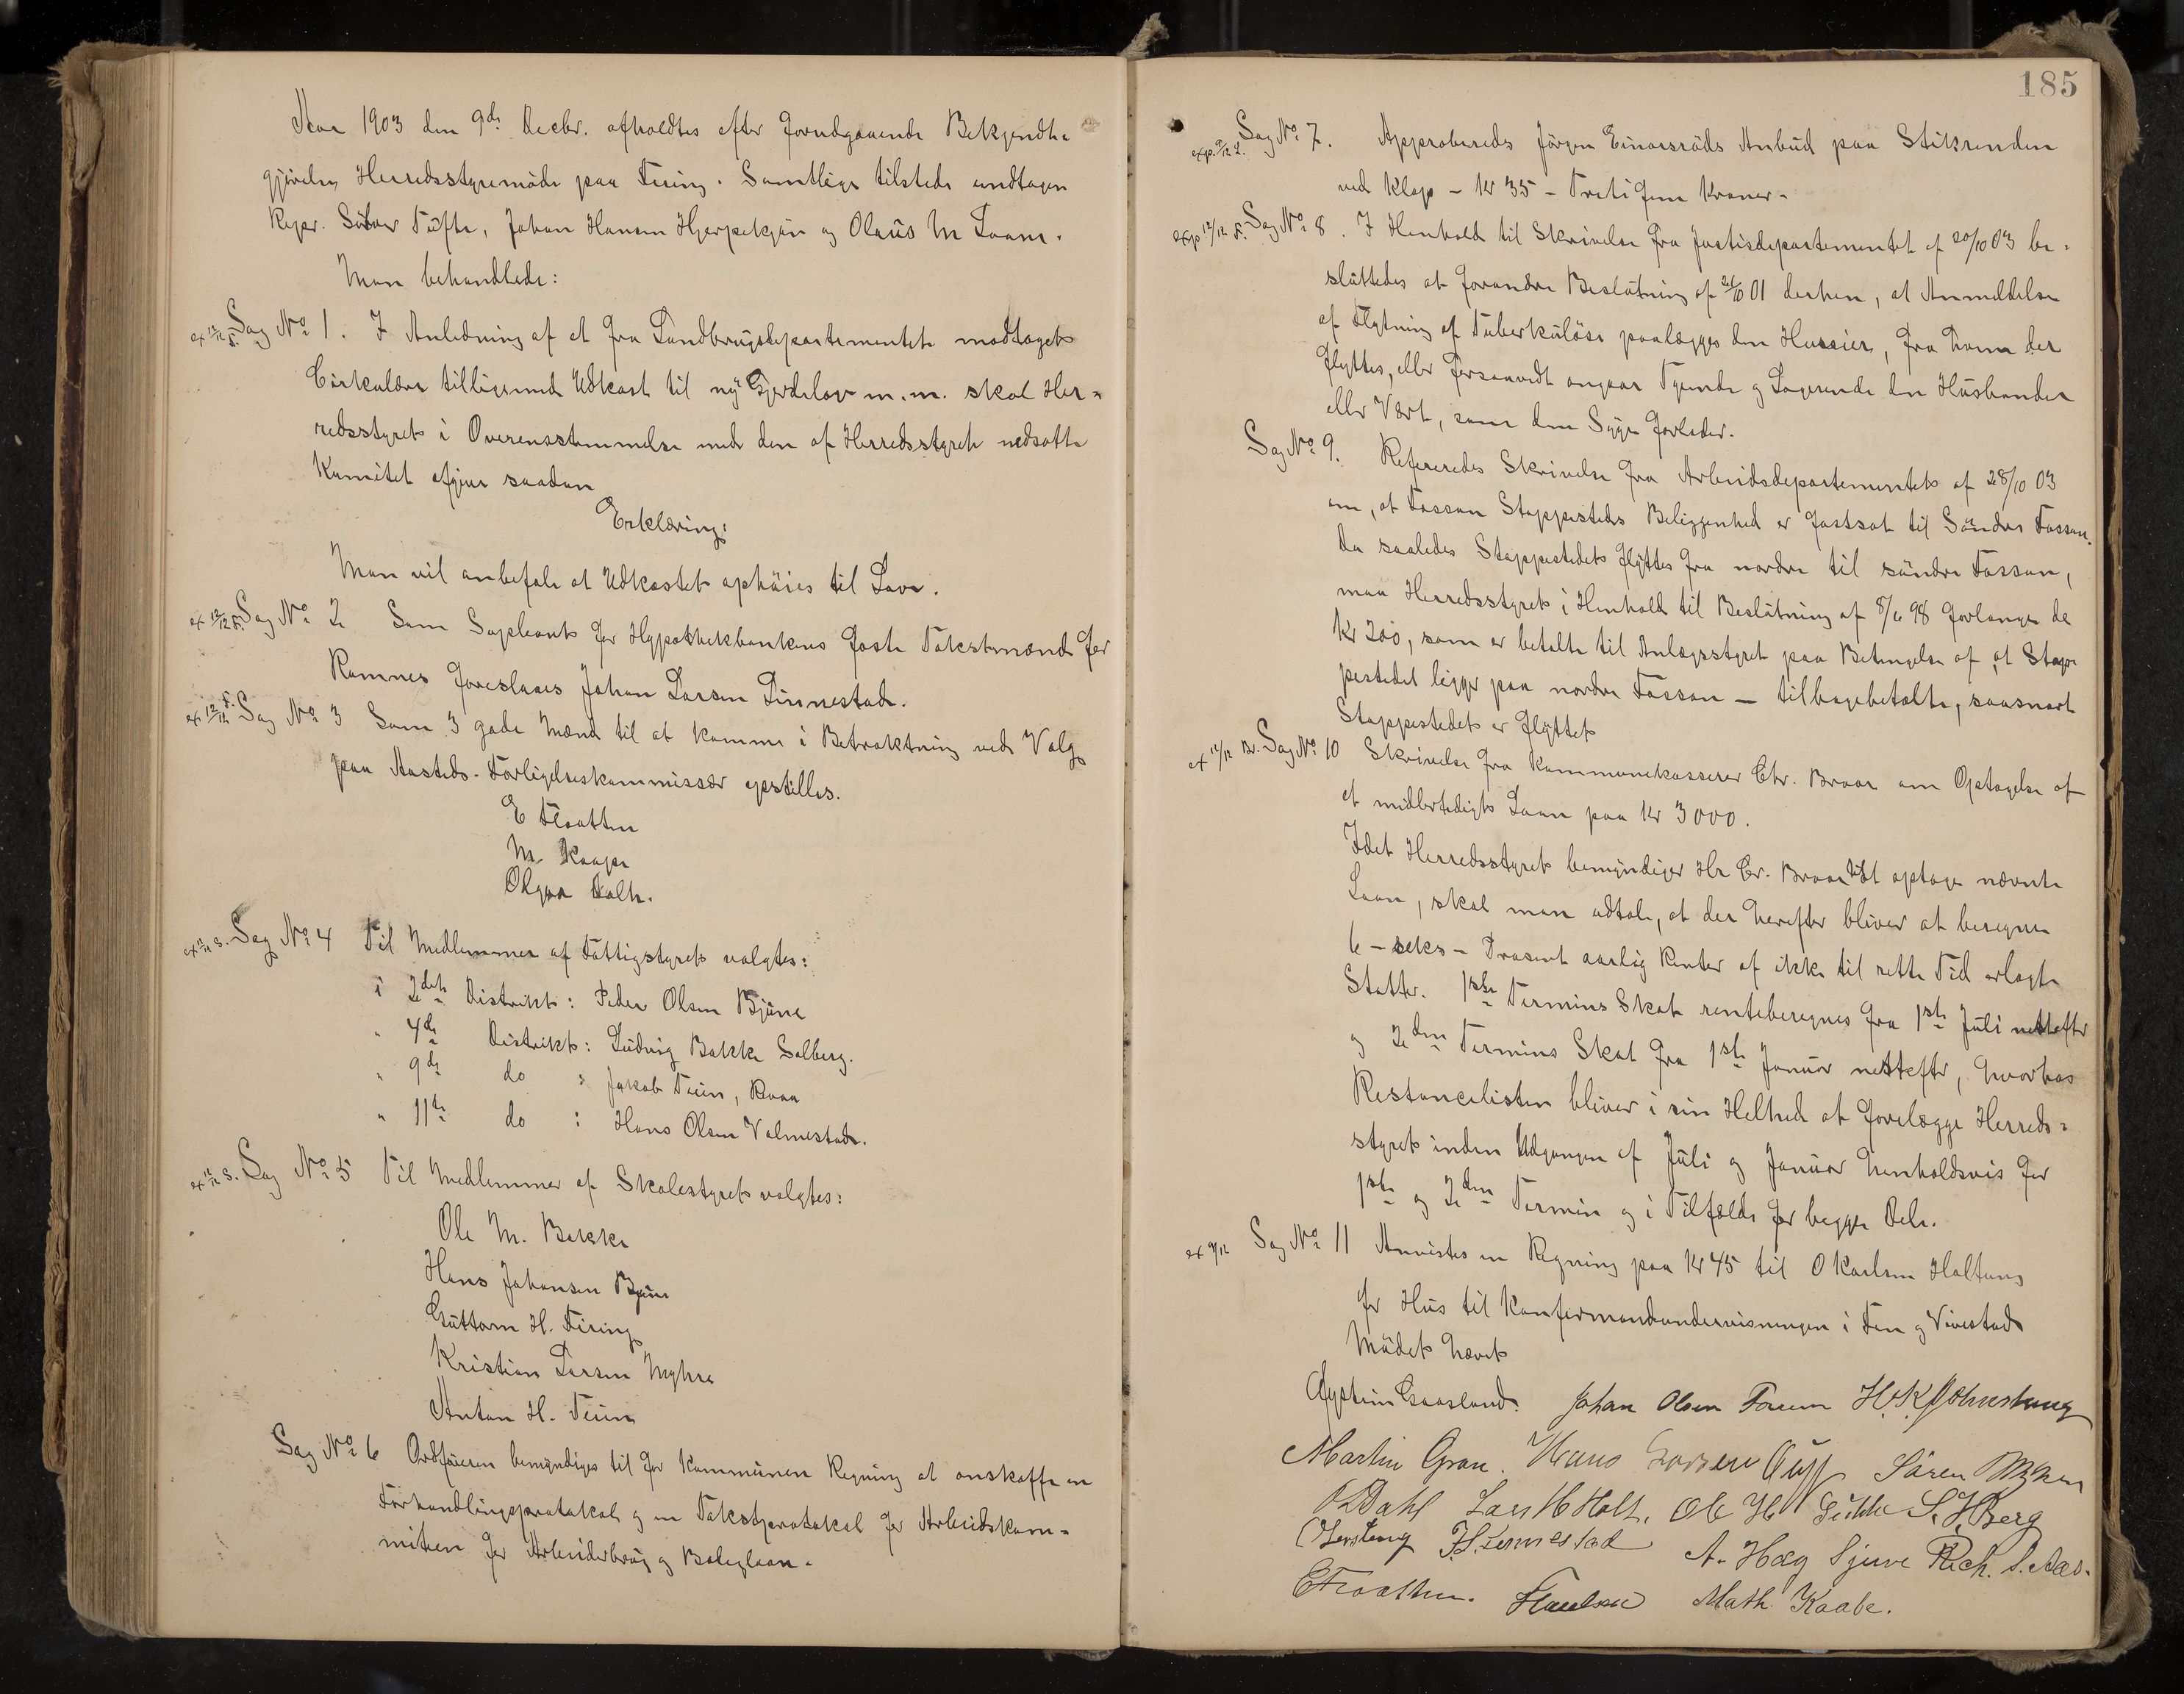 Aar 1903 den 9de Decbr. afholdtes efter forudgaaende Bekjendt-
gjörelse Herredsstyremöde paa Firing. Samtlige tilstede undtagen
Repr. Tufte, Johan Hansen Hjerpekjøn og Olaus M Laane.
Man behandlede:
ex 12/12 S. Sag No 1. I Anledning af et fra Landbrugsdepartementet modtaget
Cirkulære tilligemed Udkast til ny Gjerdelov m.m. skal Her-
redsstyret i Overensstemmelse med den af Herredsstyret nedsatte
Komitet afgive saadan
Erklæring:
Man vil anbefale at Udkastet ophöies til Lov.
ex 12/12 S. Sag No 2 Som Supleant for Hypothekbankens faste Takstmænd for
Ramnes foreslaaes Johan Larsen Linnestad.
ex 12/12 S. Sag No 3 Som 3 gode Mænd til at komme i Betraktning ved Valg
paa Aasteds-Forligelseskommissær opstilles.
E Floatten
M. Kaape
Olgar Holt.
ex 12/12 S. Sag No 4 Til Medlemmer af Fattigstyret valgtes:
i 2det Distrikt: Peder Olsen Bjune
" 4de Distrikt: Ludvig Bakke Solberg.
" 9de do : Jakob Feen, Revaa
" 11te do : Hans Olsen Valmestad.
ex 12/12 S. Sag No 5 Til Medlemmer af Skolestyret valgtes:
Ole M. Bakke
Hans Johansen Bjune
Guttorm H. Firing
Kristian Larsen Myhre
Anton H. Feen
Sag No 6 Ordföreren bemyndiges til for Kommunen Regning at anskaffe en
Forhandlingsprotokol og en Takstprotokol for Arbeidskom-
miteen for Arbeiderbrug og Boliglaan.
185
exp. 9/12 S. Sag No 7. Approberedes Jörgen Einarsröds Anbud paa Stikrenden
ved Klop - Kr 35 - Tretifem Kroner -
exp 12/12 S. Sag No 8. I Henhold til Skrivelse fra Justisdepartementet af 20/10 03 be-
sluttedes at forandre Beslutning af 01 derhen, at Anmeldelse
af Flytning af Tuberkulöse paalægges den Huseier, fra hvem der
flyttes, eller forsaavidt angaar Tyende og Logerende den Husbonden
eller Vært, som den Syge forlader.
Sag No 9. Refereredes Skrivelse fra Arbeidsdepartementet af 28/10 03
om, at Fossan Stoppesteds Beliggenhed er fastsat til Söndre Fossan.
Da saaledes Stoppestedet flyttes fra nordre til söndre Fossan,
maa Herredsstyret i Henhold til Beslutning af 8/6 98 forlange de
Kr 200, som er betalte til Anlægsstyret paa Betingelse af, at Stop-
pestedet ligger paa nordre Fossan - tilbagebetalte, saasnart
Stoppestedet er flyttet
ex 12/12 Br. Sag No 10 Skrivelse fra Kommunekasserer Chr. Braar om Optagelse af
et midlertidigt Laan paa Kr 3000.
Idet Herredsstyret bemyndiger Hr Chr. Braar til at optage nævnte
Laan, skal man udtale, at der herefter bliver at beregne
6 - seks - Prosent aarlig Renter af ikke til rette Tid erlagte
Skatter. 1ste Termins Skat renteberegnes fra 1ste Juli næstefter
og 2den Termins Skat fra 1ste Januar næstefter, hvorhos
Restancelisten bliver i sin Helhed at forelægge Herreds-
styret inden Udgangen af Juli og Januar henholdsvis for
1ste og 2den Termin og i Tilfælde for begge Dele.
ex 9/12 Sag No 11 Anvistes en Regning paa Kr 45 til O Karlsen Haltung
for Hus til Konfirmandundervisningen i Fen og Vivestad
Mödet hævet
Øystein Gaasland. Johan Olsen
Martin Gran. Hans Søren Myhre
O Dahl Lars H Holt. Ole H S. J. Berg
Linnestad A. Hæg Sjuve Rich. S. Aas.
E Floatten. Math. Kaabe.